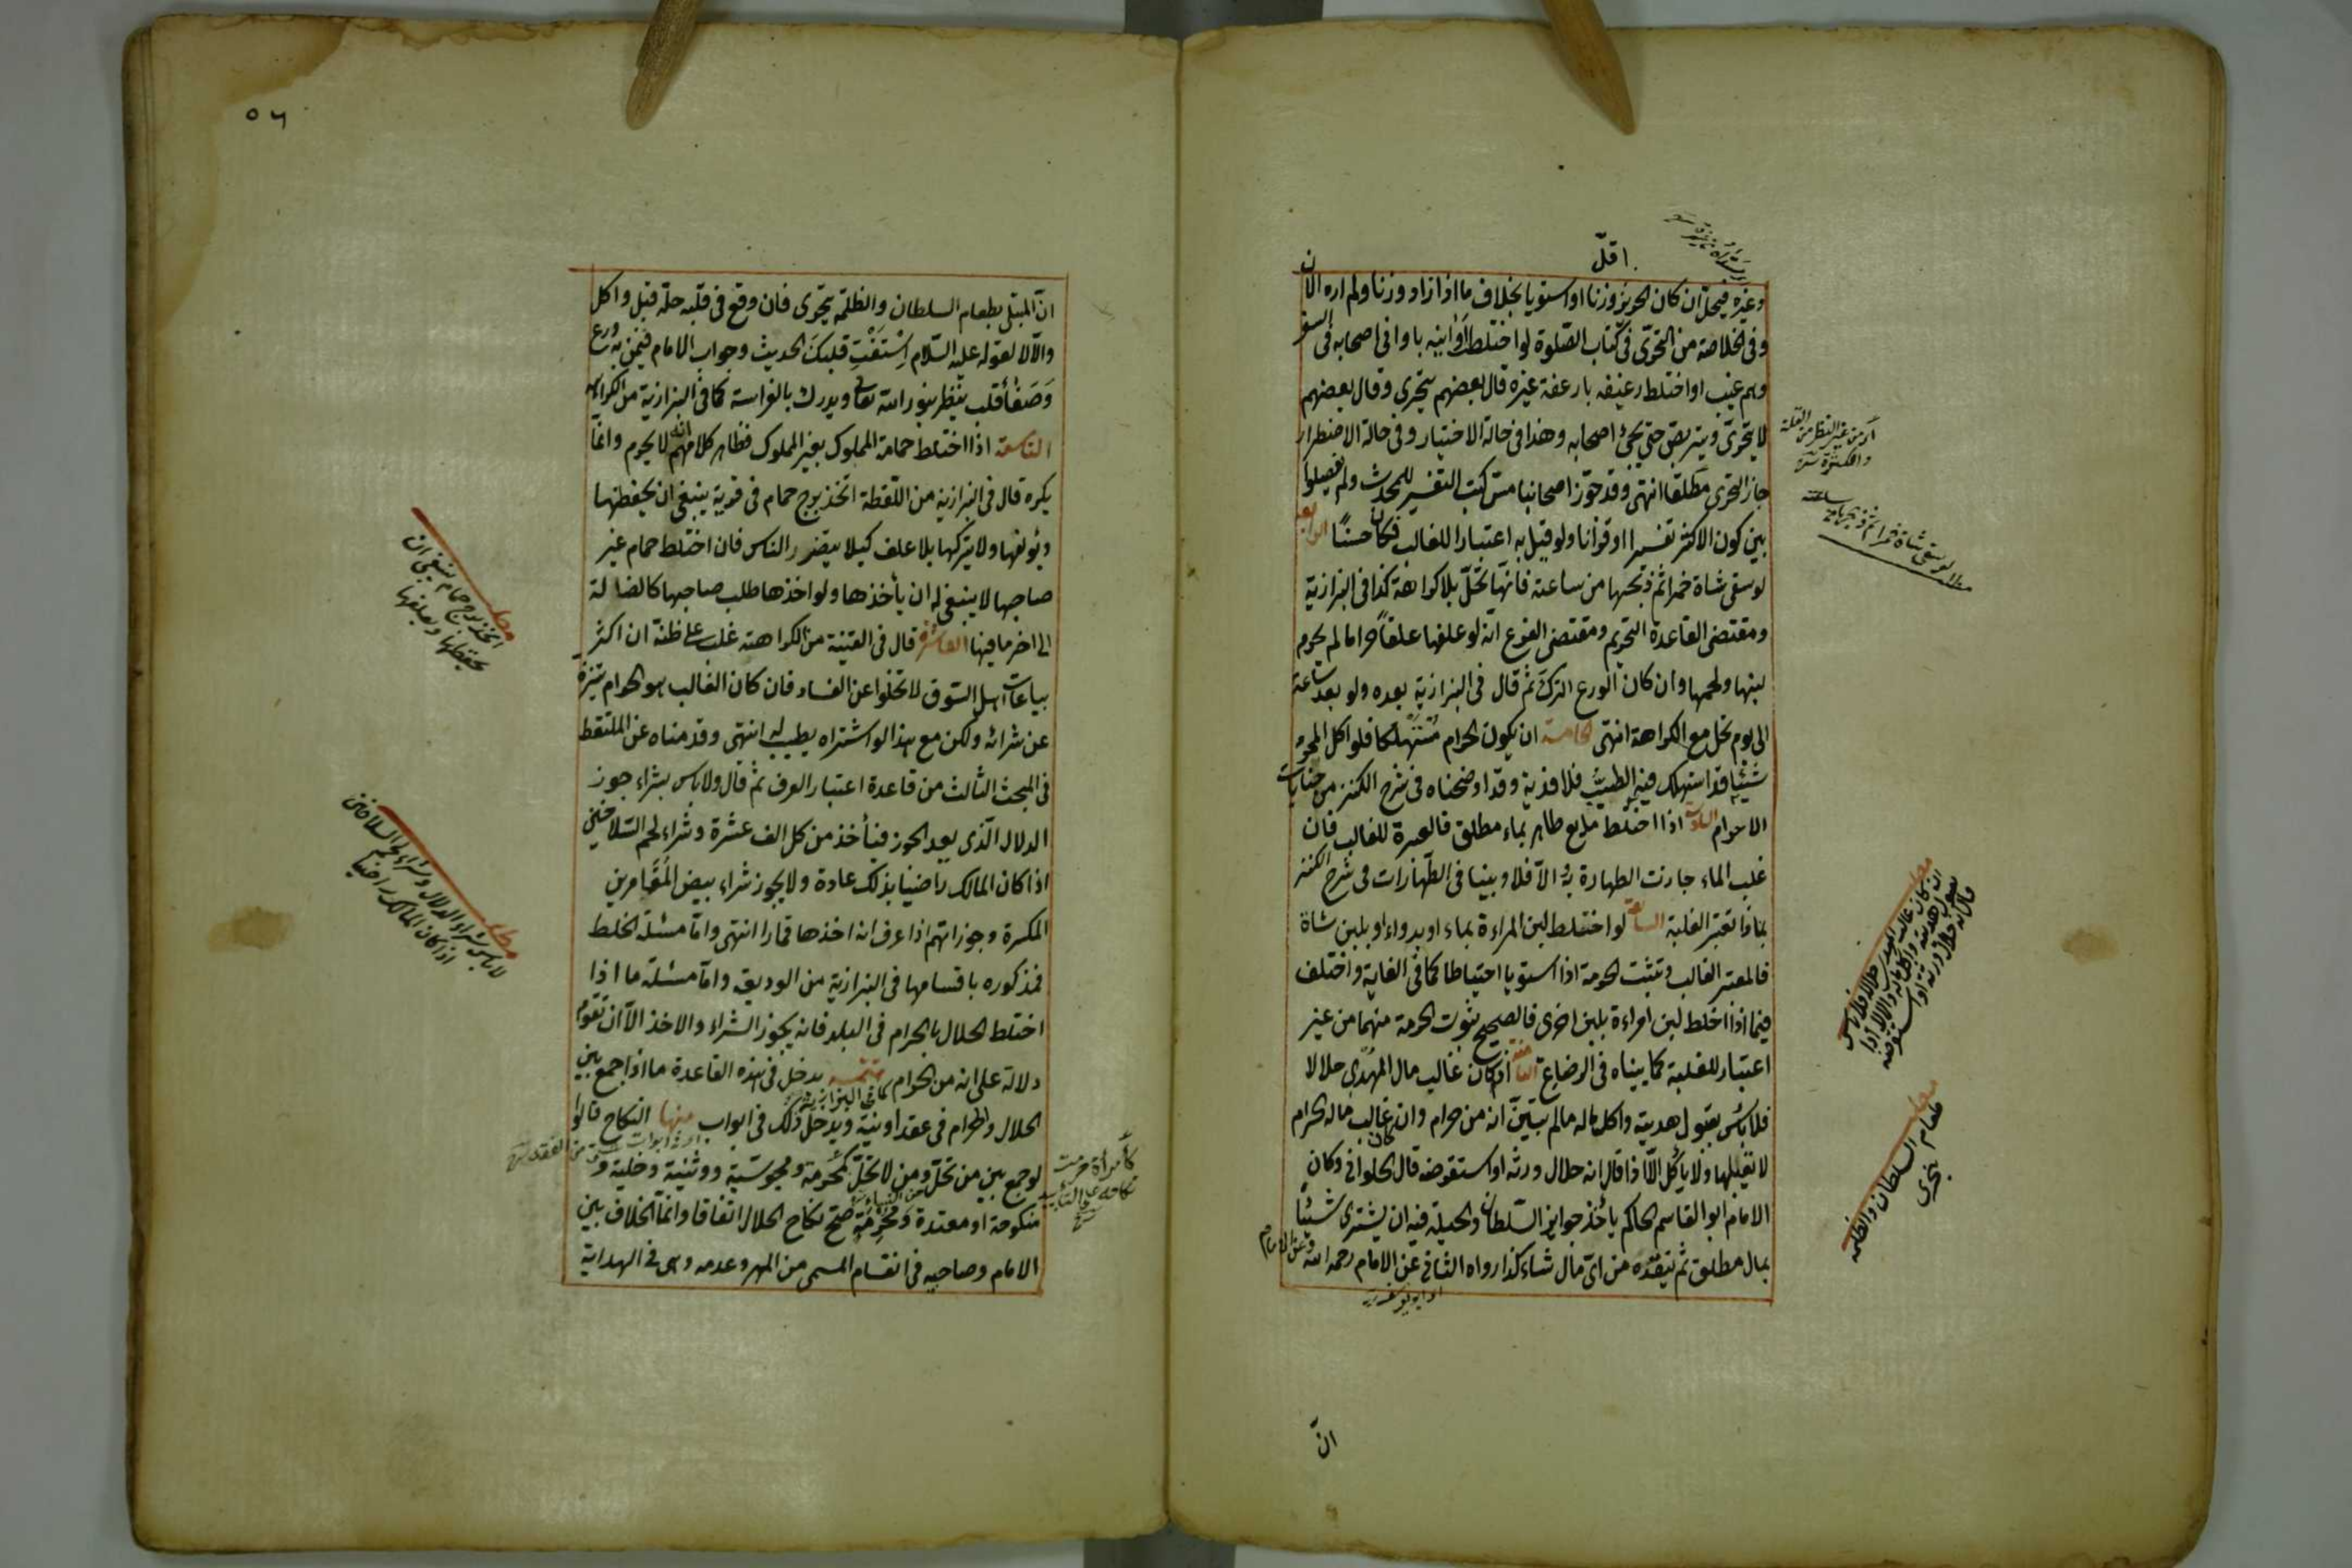 اقلّ
وغيره فيحل ان كان الحرير وزنا او استويا بخلاف ما اذا زاد وزنا ولم اره الان
وفى الخلاصة من التحرّى فى كتاب الصّلوة لو اختلط اوانيه باوانى اصحابه فى السفر
وهم غيب او اختلط رغيفه بارغفة غيره قال بعضهم يتحرى وقال بعضهم
لا يتحرّى ويتربص حتى يجئ اصحابه وهذا فى حالة الاختيار وفى حالة الاضطرار
جاز التحرى مطلقا انتهى وقد جوّز اصحابنا مسّ كتب التفسير للمحدث ولم يفصلوا
بين كون الاكثر تفسيرا او قرآنا ولو قيل به اعتبارا للغالب لكان حسنًا الرابعة
لو سقى شاة خمرا ثم ذبحها من ساعته فانها تحلّ بلا كراهة كذا فى البزازية
ومقتضى القاعدة التحريم ومقتضى الفرع انه لو علفها علفًا حراما لم يحرم
لبنها ولحمها وان كان الورع الترك ثم قال فى البزازية بعده ولو بعد ساعة
الى يوم تحل مع الكراهة انتهى الخامسة ان يكون الحرام مُسْتَهْلَكا فلو اكل المحرم
شيئا قد استهلك فيه الطيب فلا فدية وقد اوضحناه فى شرح الكنز من جنايات
الاحرام السادسة اذا اختلط مايع طاهر بماء مطلق فالعبرة للغالب فان
غلب الماء جازت الطهارة به والا فلا وبينا فى الطهارات فى شرح الكنز
بماذا تعتبر الغلبة السابعة لو اختلط لبن المراءة بماء او بدواء او بلبن شاة
فالمعتبر الغالب وتثبت الحرمة اذا استويا احتياطا كما فى الغاية واختلف
فيما اذا اختلط لبن امراءة بلبن اخرى فالصحيح ثبوت الحرمة منهما من غير
اعتبار للغلبة كما بيناه فى الرضاع الثامنة اذا كان غالب مال المهدى حلالا
فلا بأس بقبول هديته واكل ماله مالم يتبيّن انه من حرام وان كان غالب ماله الحرام
لا يقبلها ولا يأكل الّا اذا قال انه حلال ورثه او استقرضه قال الحلوانى وكان
الامام ابو القاسم الحاكم يأخذ جوايز السّلطان والحيلة فيه ان يشترى شيئًا
بمال مطلق ثم ينقده من اىّ مال شاء كذا رواه الثانى عن الامام رحمه الله وعن الامام
انّ
لو سقى شاة خمرا ثم ذبحها من ساعته
مطلب ان كان غالب مال المهدى حلالا فلا بأس
بقبول هديته واكل ماله والا لا الا اذا
قال انه حلال ورثه او استقرضه
مطلب طعام السلطان والظلمة
يتحرى
٥٦
انّ المبتلى بطعام السلطان والظلمة يتحرى فان وقع فى قلبه حله قبل واكل
والّا لا لقوله عليه السّلام اِسْتَفْتِ قلبكَ الحديث وجواب الامام فيمن به ورع
وَصَفاء قلب ينظر بنور الله تعالى ويدرك بالفراسة كما فى البزازية من الكراهية
التاسعة اذا اختلط حمامة المملوك بغير المملوك فظاهر كلامهم انه لا يحرم وانما
يكره قال فى البزازية من اللّقطة اتخذ برج حمام فى قرية ينبغى ان يحفظها
ويؤلفها ولا يتركها بلا علف كيلا يتضرر الناس فان اختلط حمام غير
صاحبها لا ينبغى له ان يأخذها ولو اخذها طلب صاحبها كالضالة
الى اخر ما فيها العاشرة قال فى القنية من الكراهة غلب على ظنه ان اكثر
بياعات اهل السّوق لا تخلوا عن الفساد فان كان الغالب هو الحرام تنزه
عن شرائه ولكن مع هذا لو اشتراه يطيب له انتهى وقدمناه عن الملتقط
فى المبحث الثالث من قاعدة اعتبار العرف ثم قال ولا بأس بشراء جوز
الدلال الّذى يعد الجوز فيأخذ من كل الف عشرة وشراء لحم السّلاخين
اذا كان المالك راضيا بذلك عادة ولا يجوز شراء بيض المُقامرين
المكسرة وجوزاتهم اذا عرف انه اخذها قمارا انتهى وامّا مسئلة الخلط
فمذكوره باقسامها فى البزازية من الوديعة وامّا مسئلة ما اذا
اختلط الحلال بالحرام فى البلد فانه يجوز الشراء والاخذ الّا ان تقوم
دلالة على انه من الحرام كما فى البزازية تتمّه يدخل فى هذه القاعدة ما اذا جمع بين
الحلال والحرام فى عقد او نية ويدخل ذلك فى ابواب منها النكاح قالوا
لو جمع بين من تحلّ ومن لا تحلّ كمحرمة ومجوسيّة ووثنية وخلية و
منكوحة او معتدة ومُحرِمةٍ صحّ نكاح الحلال اتفاقا وانّما الخلاف بين
الامام وصاحبيه فى انقسام المسمى من المهر وعدمه وهى فى الهداية
مطلب اتخذ برج حمام ينبغى ان
يحفظها ويعلفها
مطلب لا بأس بشراء الدلال وشراء لحم السلاخين
اذا كان المالك راضيا